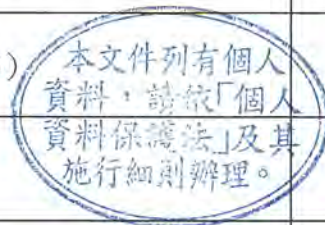 )
本文件列有個人
資料，請依「個人
資料保護法」及其
施行細則辦理。